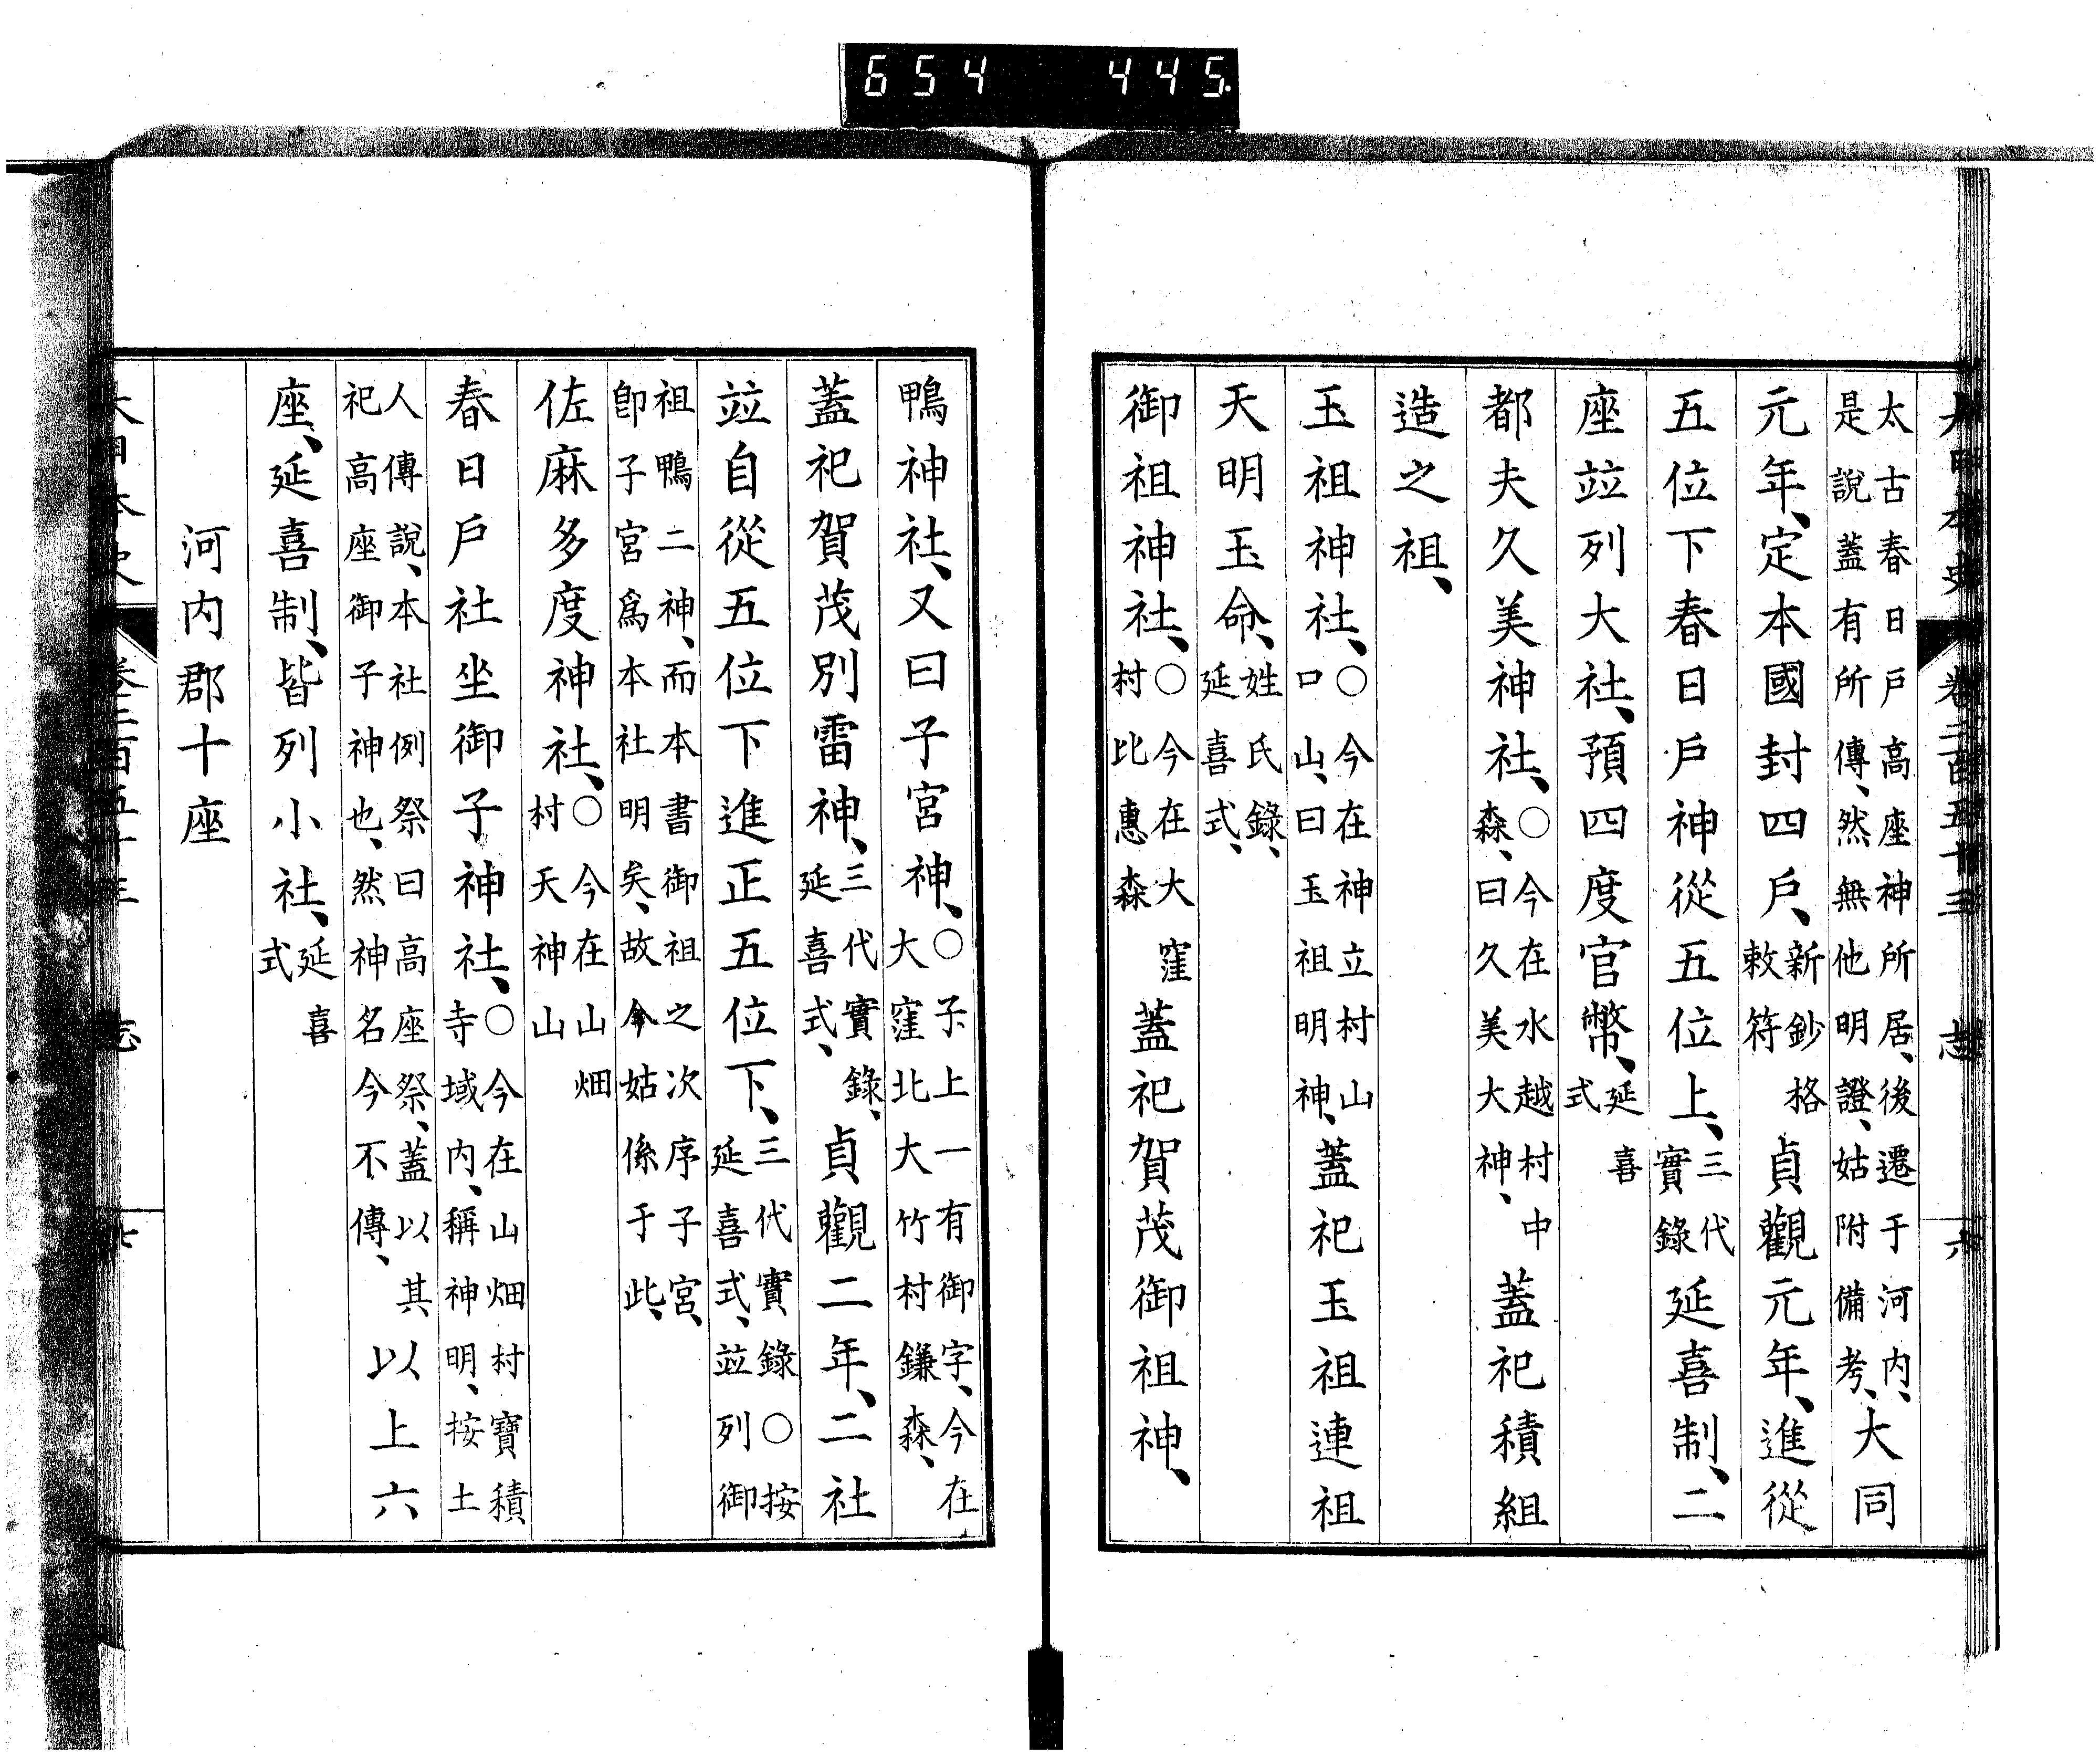 654 445.
大日本史 卷二百五十三 志 六
太古春日戸高座神所居、後遷于河内、
是說蓋有所傳、然無他明證、姑附備考、大同
元年、定本國封四戸、新鈔格
敕符貞觀元年、進從
五位下春日戸神從五位上、三代
實錄延喜制、二
座竝列大社、預四度官幣、延喜
式
都夫久美神社、○今在水越村中
森、曰久美大神、蓋祀積組
造之祖、
玉祖神社、○今在神立村山
口山、曰玉祖明神、蓋祀玉祖連祖
天明玉命、姓氏錄、
延喜式、
御祖神社、○今在大窪
村比惠森蓋祀賀茂御祖神、
鴨神社、又曰子宮神、○子上一有御字、今在
大窪北大竹村鎌森、
蓋祀賀茂別雷神、三代實錄、
延喜式、貞觀二年、二社
竝自從五位下進正五位下、三代實錄○按
延喜式、竝列御
祖鴨二神、而本書御祖之次序子宮、
卽子宮爲本社明矣、故今姑係于此、
佐麻多度神社、○今在山畑
村天神山
春日戸社坐御子神社、○今在山畑村寶積
寺域内、稱神明、按土
人傳說、本社例祭曰高座祭、蓋以其
祀高座御子神也、然神名今不傳、以上六
座、延喜制、皆列小社、延喜
式
河内郡十座
大日本史 卷二百五十三 志 七